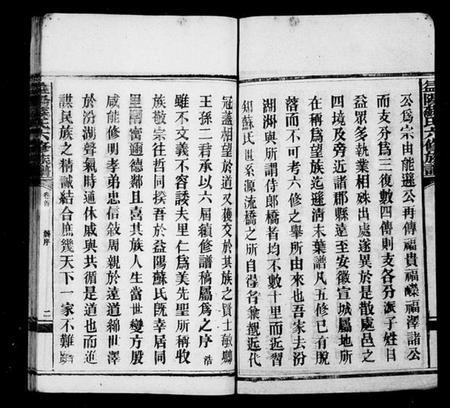 益陽蘇氏六修族譜
公為宗由能遜公再傳福貴福嶸福澤諸公
而支分為三復數四傳則支各分派子姓日
益眾多執業相殊出處遂異於是散處邑之
四境及旁近諸郡縣遠至安徽宣城屬地所
在稱為望族迄遜清末葉譜凡五修已有脫
落而不可考六修之舉所由來也吾家去汾
湖洲與所謂侍郎橋者均不數十里而近習
知蘇氏世系源流橋之所自得名近代
冠蓋相望於道又獲交於其族之賢士敏
王孫二君承以六屆續修譜稿屬為之序浩
雖不文義不容諉夫里仁為美先聖所稱收
族敬宗往哲同揆吾於益陽蘇氏既幸居同
里需通德鄰且喜其族人生當世變方殷
咸能修明孝弟忠信敦周親於遠道綿世澤
於汾湖聲氣時通休戚與共循是道也而進
謀民族之精誠結合庶幾天下一家不難躋
益陽蘇氏六修族譜
卷首
序
二